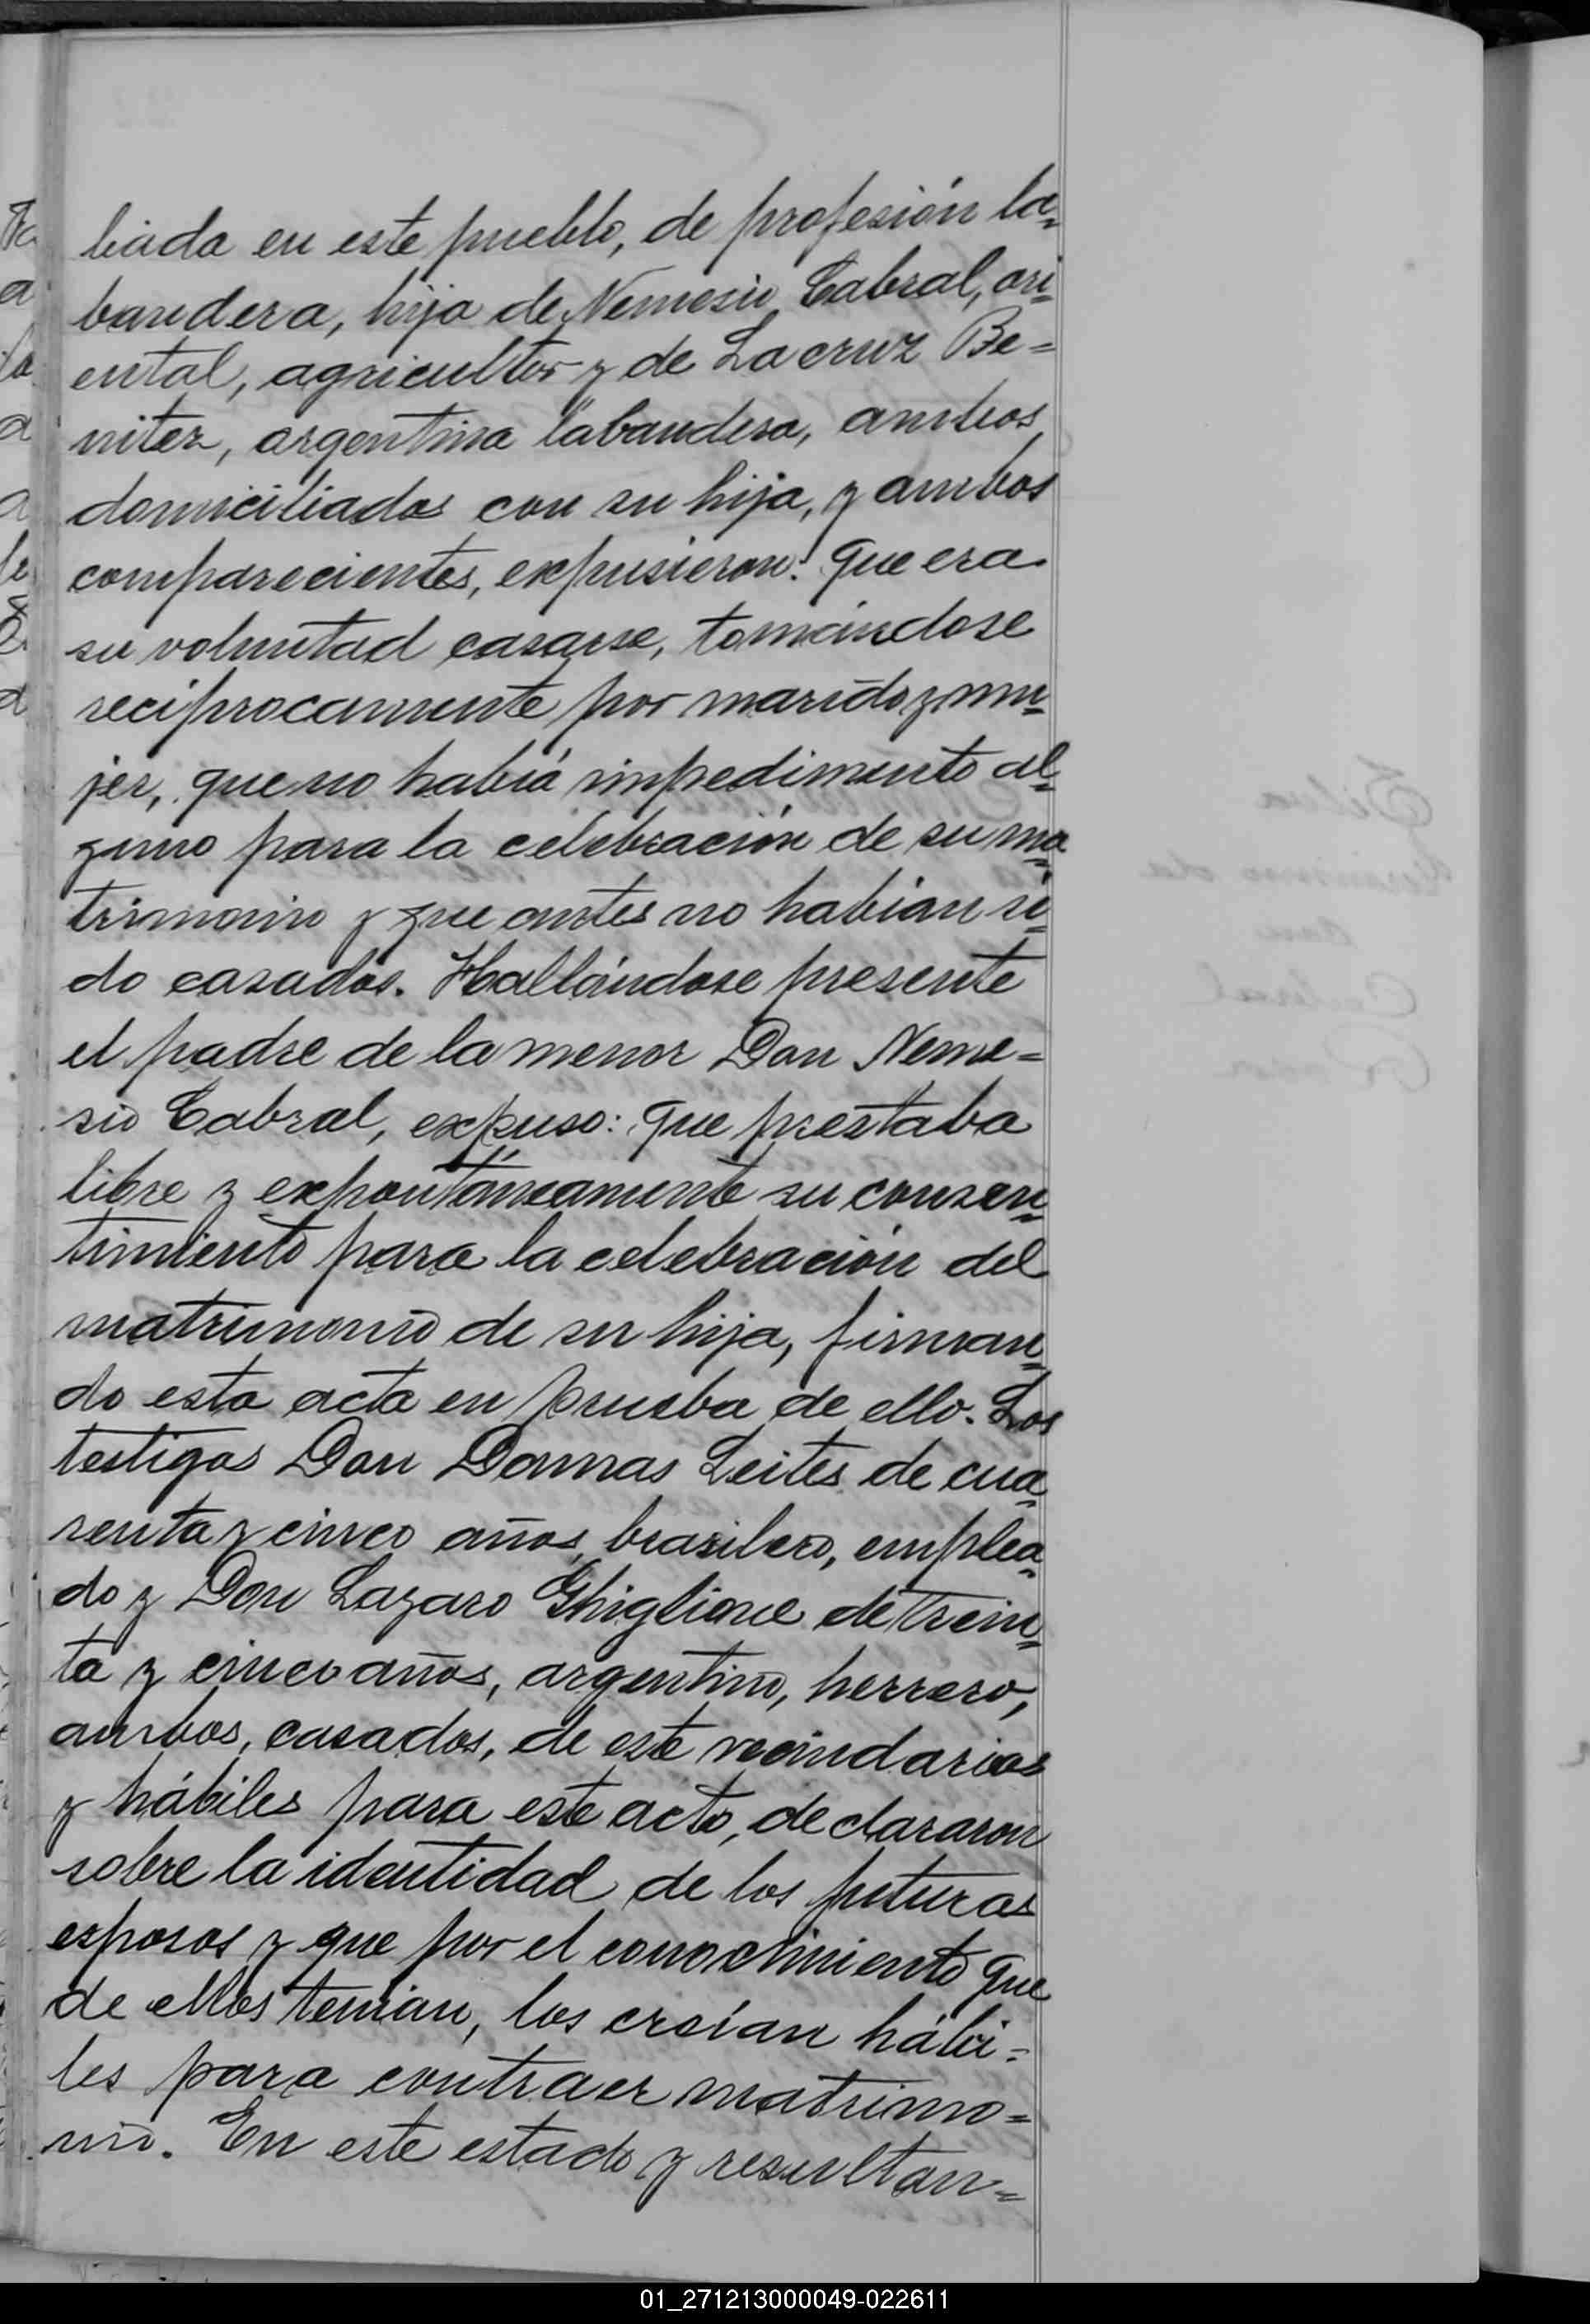 liada en este pueblo, de profesión la=
bandera, hija de Nemesio Cabral, ori=
ental, agricultor y de Lacruz Be=
nitez, argentina labandera, ambos
domiciliados con su hija, y ambos
comparecientes, expusieron: que era
su voluntad casarse, tomándose
reciprocamente por marido y mu=
jer, que no había impedimento al=
guno para la celebración de su ma=
trimonio y que antes no habian si=
do casados. Hallándose presente
el padre de la menor Don Neme=
sio Cabral, expuso: que prestaba
libre y expontáneamente su consen=
timiento para la celebración del
matrimonio de su hija, firman=
do esta acta en prueba de ello. Los
testigos Don Damas Leites de cua=
renta y cinco años, brasilero, emplea=
do y Don Lazaro Ghiglione de trein=
ta y cinco años, argentino, herrero,
ambos, casados, de este vecindarios
y hábiles para este acto, declararon
sobre la identidad de los futuros
esposos y que por el conocimiento que
de ellos tenian, los creían hábi=
les para contraer matrimo=
nio. En este estado y resultan=
01_271213000049-022611